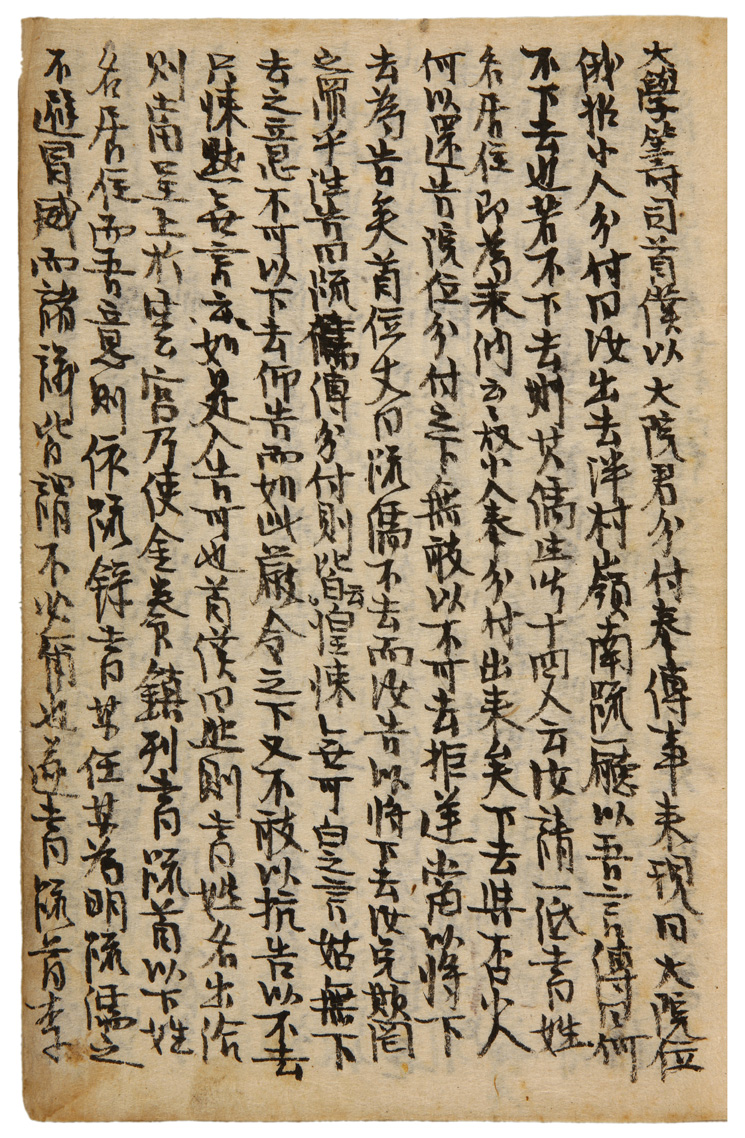 大學等司首僕以大院君分付奉傳事来現曰大院位
俄招小人分付曰汝出去泮村嶺南疏廳以吾言傳曰何
不下去也若不下去則其儒生皆十四人云汝請一低書姓
名居住即為来納云故小人奉分付出来矣下去与否小人
何以還告院位分付之下無敢以不可去拒逆當以將下
去為告矣首位丈曰疏儒不去而汝告以將下去汝免欺罔
之罪乎法告曰疏儒傳分付則皆云惶悚無可白之言姑無下
去之意不可以下去仰告而如此嚴令之下又不敢以抗告以不去
只悚黙無言云如是入告可也首僕曰然則書姓名出給
則當呈上於雲宫乃使金養鎮列書疏首以下姓
名居住而吾意則依疏錄書某任某為明疏儒之
不避冒威而諸議皆謂不必爾也遂書疏首李